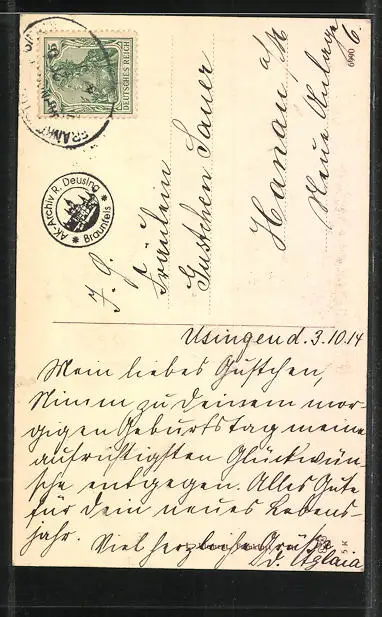 DEUTSCHES REICH
FRANKFURT
AK-Archiv R. Deusing
Braunfels
Fräulein
Gustchen Sauer
Hanau a/M
Neue Anlage
6
6990
Usingen d. 3.10.14
Mein liebes Gustchen,
Nimm zu deinem mor-
gigen Geburtstag meine
aufrichtigsten Glückwün-
sche entgegen. Alles Gute
für dein neues Lebens-
jahr. Viel herzliche Grüße
d. Aglaia
5 K